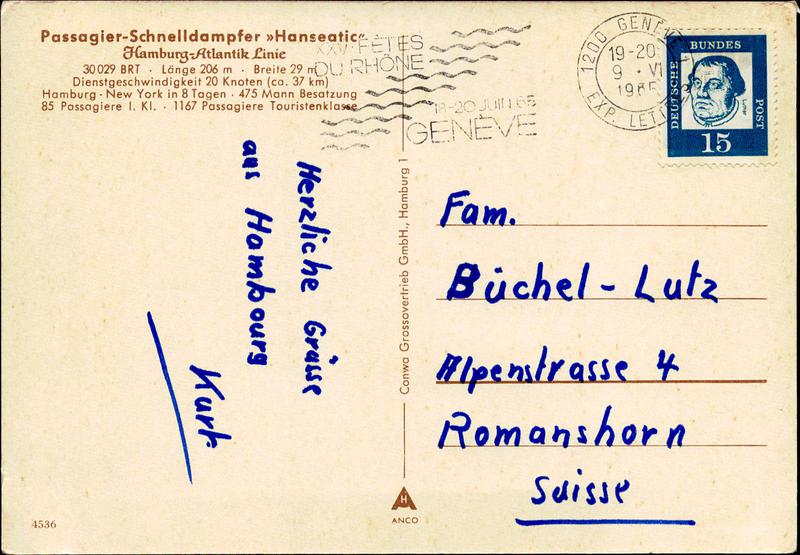 Passagier-Schnelldampfer »Hanseatic«
Hamburg-Atlantik Linie
30 029 BRT · Länge 206 m · Breite 29 m
Dienstgeschwindigkeit 20 Knoten (ca. 37 km)
Hamburg - New York in 8 Tagen · 475 Mann Besatzung
85 Passagiere I. Kl. · 1167 Passagiere Touristenklasse
XXV. FÊTES
DU RHÔNE
18-20 JUIN 65
GENÈVE
1200 GENÈVE 1
19-20
9. VI
1965
EXP. LETT
DEUTSCHE
BUNDES
POST
15
Herzliche Grüsse
aus Hambourg
Kurt.
Conwa Grossovertrieb GmbH., Hamburg 1
Fam.
Büchel - Lutz
Alpenstrasse 4
Romanshorn
Suisse
H
ANCO
4536